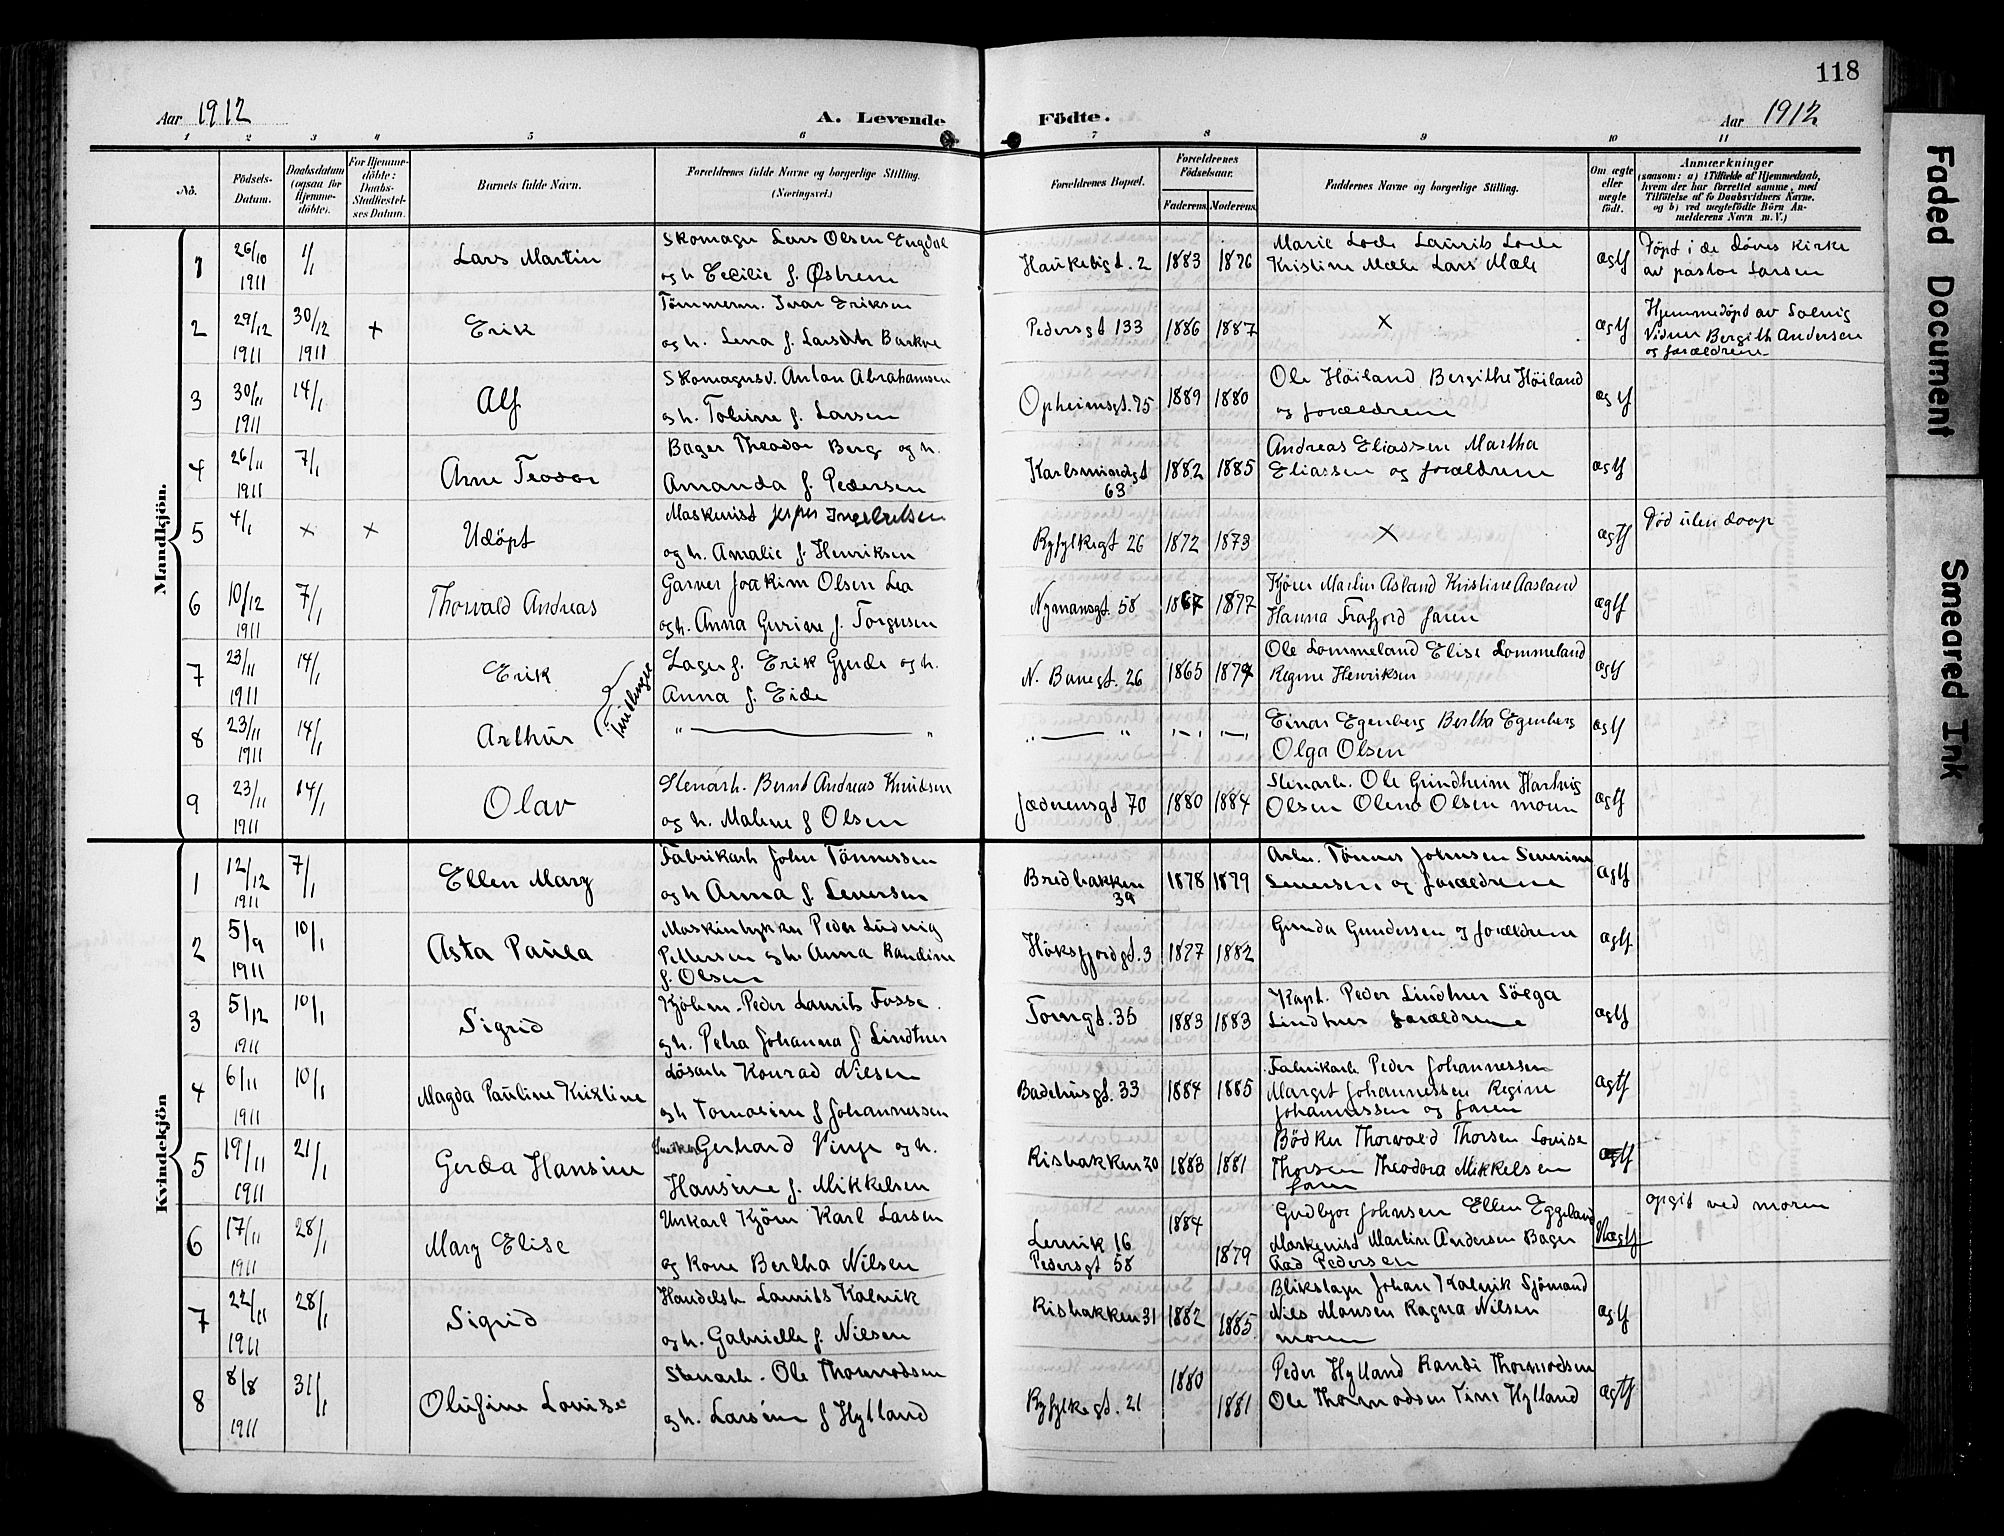 118
Aar 1912
A. Levende
Födte.
Aar 1912
1 2 3 4 5 6 7 8 9 10 11
No.
Födsels-
Datum.
Daabsdatum
(ogsaa for
Hjemme-
döbte).
For Hjemme-
döbte:
Daabs-
Stadfæstel-
ses Datum.
Barnets fulde Navn.
Forældrenes fulde Navne og borgerlige Stilling.
(Næringsvei.)
Forældrenes Bopæl.
Forældrenes
Födselsaar.
Faderens. Moderens.
Faddernes Navne og borgerlige Stilling.
Om ægte
eller
uægte
født.
Anmærkninger
(saasom: a) i Tilfælde af Hjemmedaab,
hvem der har forrettet samme, med
Tilföielse af to Daabsvidners Navne.
og b) ved uægtefödte Börn An-
melderens Navn m. V.)
Mandkjön.
1 26/10 1911 1/1 Lars Martin
Skomager Lars Olsen Engdal
og h. Cecilie f. Østrem
Haukeligt. 2 1883 1876
Marie Lode Laurits Lode
Kristine Mæle Lars Mæle
ægtf
Døpt i de døves kirke
av pastor Larsen
2 29/12 1911 30/12 1911 + Erik
Tømmerm. Ivar Eriksen
og h. Lena f. Larsdtr Barkve
Pedersgt 133 1886 1887 × ægtf
Hjemmedøpt av Solveig
Vidner Bergith Andersen
og forældrene
3 30/11 1911 14/1 Alf
Skomagersv. Anton Abrahamsen
og h. Tobine f. Larsen
Opheimsgt. 75 1889 1880
Ole Höiland Bergithe Höiland
og forældrene
ægtf
4 26/11 1911 7/1 Arne Teodor
Bager Theodor Berg og h.
Amanda f. Pedersen
Karlsmindegt 63 1882 1885
Andreas Eliassen Martha
Eliassen og forældrene
ægtf
5 4/1 × × Udöpt
Maskinist Jesper Ingebretsen
og h. Amalie f. Henriksen
Ryfylkegt 26 1872 1873 × ægtf
Død uten daap
6 10/12 1911 7/1 Thorvald Andreas
Garver Joakim Olsen Lea
og h. Anna Gurine f. Torgersen
Nymansgt. 58 1867 1877
Kjörer Martin Asland Kristine Aasland
Hanna Frafjord faren
ægtf
7 23/11 1911 14/1 Erik
Tvillinger
Lager f. Erik Gjerde og h.
Anna f. Eide
N. Banegt. 26 1865 1874
Ole Lommeland Elise Lommeland
Regine Henriksen
ægtf
8 23/11 1911 14/1 Arthur
" — "
" — " "—" "—"
Einar Egenberg Bertha Egenberg
Olga Olsen
ægtf
9 23/11 1911 14/1 Olav
Stenarb. Bernt Andreas Knudsen
og h. Malene f Olsen
Jædrensgt 70 1880 1884
Stenarb. Ole Grindheim Hartvig
Olsen Olena Olsen moren
ægtf
Kvindekjön
1 12/12 1911 7/1 Ellen Mary
Fabrikarb John Tönnessen
og h Anna f. Seversen
Bredbakken 39 1878 1879
Arb. Tönnes Johnsen Severine
Seversen og forældrene
ægtf
2 5/9 1911 10/1 Asta Paula
Maskintrykker Peder Ludvig
Pettersen og h. Anna Randine
f. Olsen
Höksfjordgt. 3 1877 1882
Gunda Gundersen og forældrene
ægtf
3 5/12 1911 10/1 Sigrid
Kjöbm. Peder Laurits Fosse
og h. Petra Johanna f Lindtner
Torngt. 35 1883 1883
Kapt. Peder Lindtner Sölga
Lindtner forældrene
ægtf
4 6/11 1911 10/1 Magda Pauline Kristine
Lösarb Konrad Nilsen
og h Tomasine f Johannessen
Badehusgt. 33 1884 1885
Fabrikarb Peder Johannessen
Margit Johannessen Regine
Johannessen og faren
ægtf
5 19/11 1911 21/1 Gerda Hansine
Snedker Gerhard Vinje og h.
Hansine f. Mikkelsen
Risbakken 20 1883 1881
Bödker Thorvald Thorsen Louise
Thorsen Theodora Mikkelsen
faren
ægtf
6 17/11 1911 28/1 Mary Elise
Unkarl Kjörer Karl Larsen
og kone Bertha Nilsen
Lervik 16
Pedersgt 58
1884 1879
Gudbjor Johnsen Ellen Eggeland
Maskinist Martin Andersen Bager
Aad Pedersen
Uægtf
opgit ved moren
7 22/11 1911 28/1 Sigrid
Handelsb Laurits Kalvik
og h. Gabrielle f. Nilsen
Risbakken 31 1882 1885
Blikslager Johan Kalvik Sjömand
Nils Monsen Ragna Nilsen
moren
ægtf
8 8/8 1911 31/1 Olufine Louise
Stenarb. Ole Thormodsen
og h. Larsine f Hylland
Ryfylkegt. 21 1880 1881
Peder Hylland Randi Thormodsen
Ole Thormodsen Tine Hylland
ægtf
Faded Document
Smeared Ink